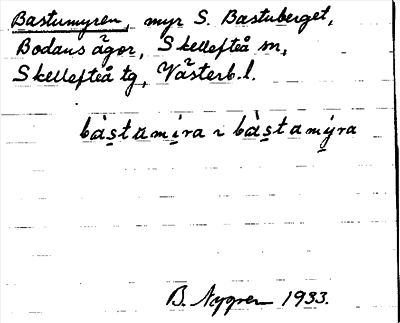 Bastumyren, myr S. Bastuberget,
Bodans ägor, Skellefteå sn,
Skellefteå tg, Västerb. l.
bàs̱tami̱ra i bàs̱tamý̱ra
B. Nygren 1933.